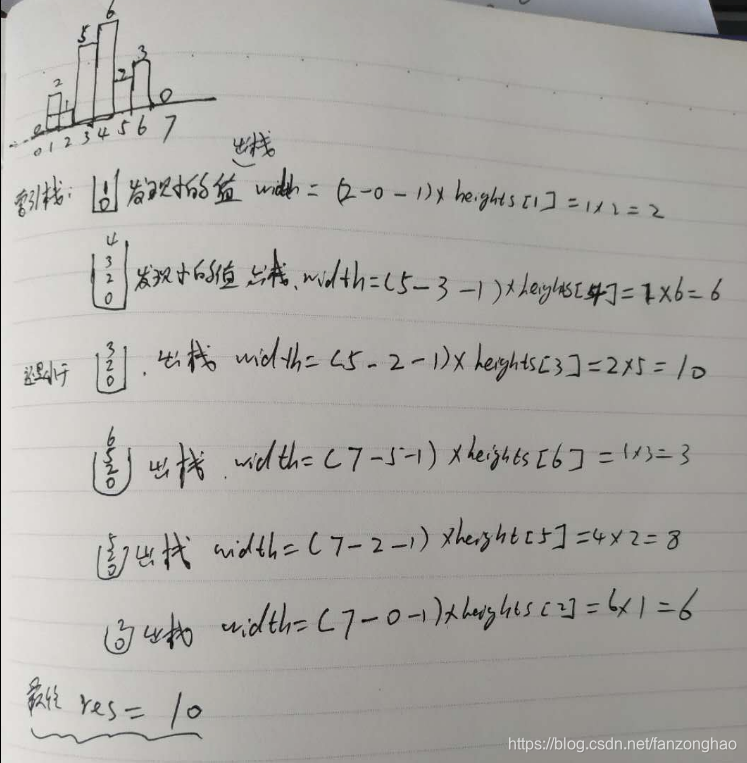 6
5
2 1 2 3 0
0 0 1 2 3 4 5 6 7
出栈
索引栈: 1 0 发现小的值 width = (2-0-1)×heights[1]=1×2=2
4 3 2 0 发现小的值 出栈. width=(5-3-1)×heights[4]=1×6=6
还是小于 3 2 0 . 出栈 width=(5-2-1)×heights[3]=2×5=10
6 5 2 0 出栈. width=(7-5-1)×heights[6]=1×3=3
5 2 0 出栈 width=(7-2-1)×height[5]=4×2=8
2 0 出栈 width=(7-0-1)×heights[2]=6×1=6
最终 res= 10
https://blog.csdn.net/fanzonghao